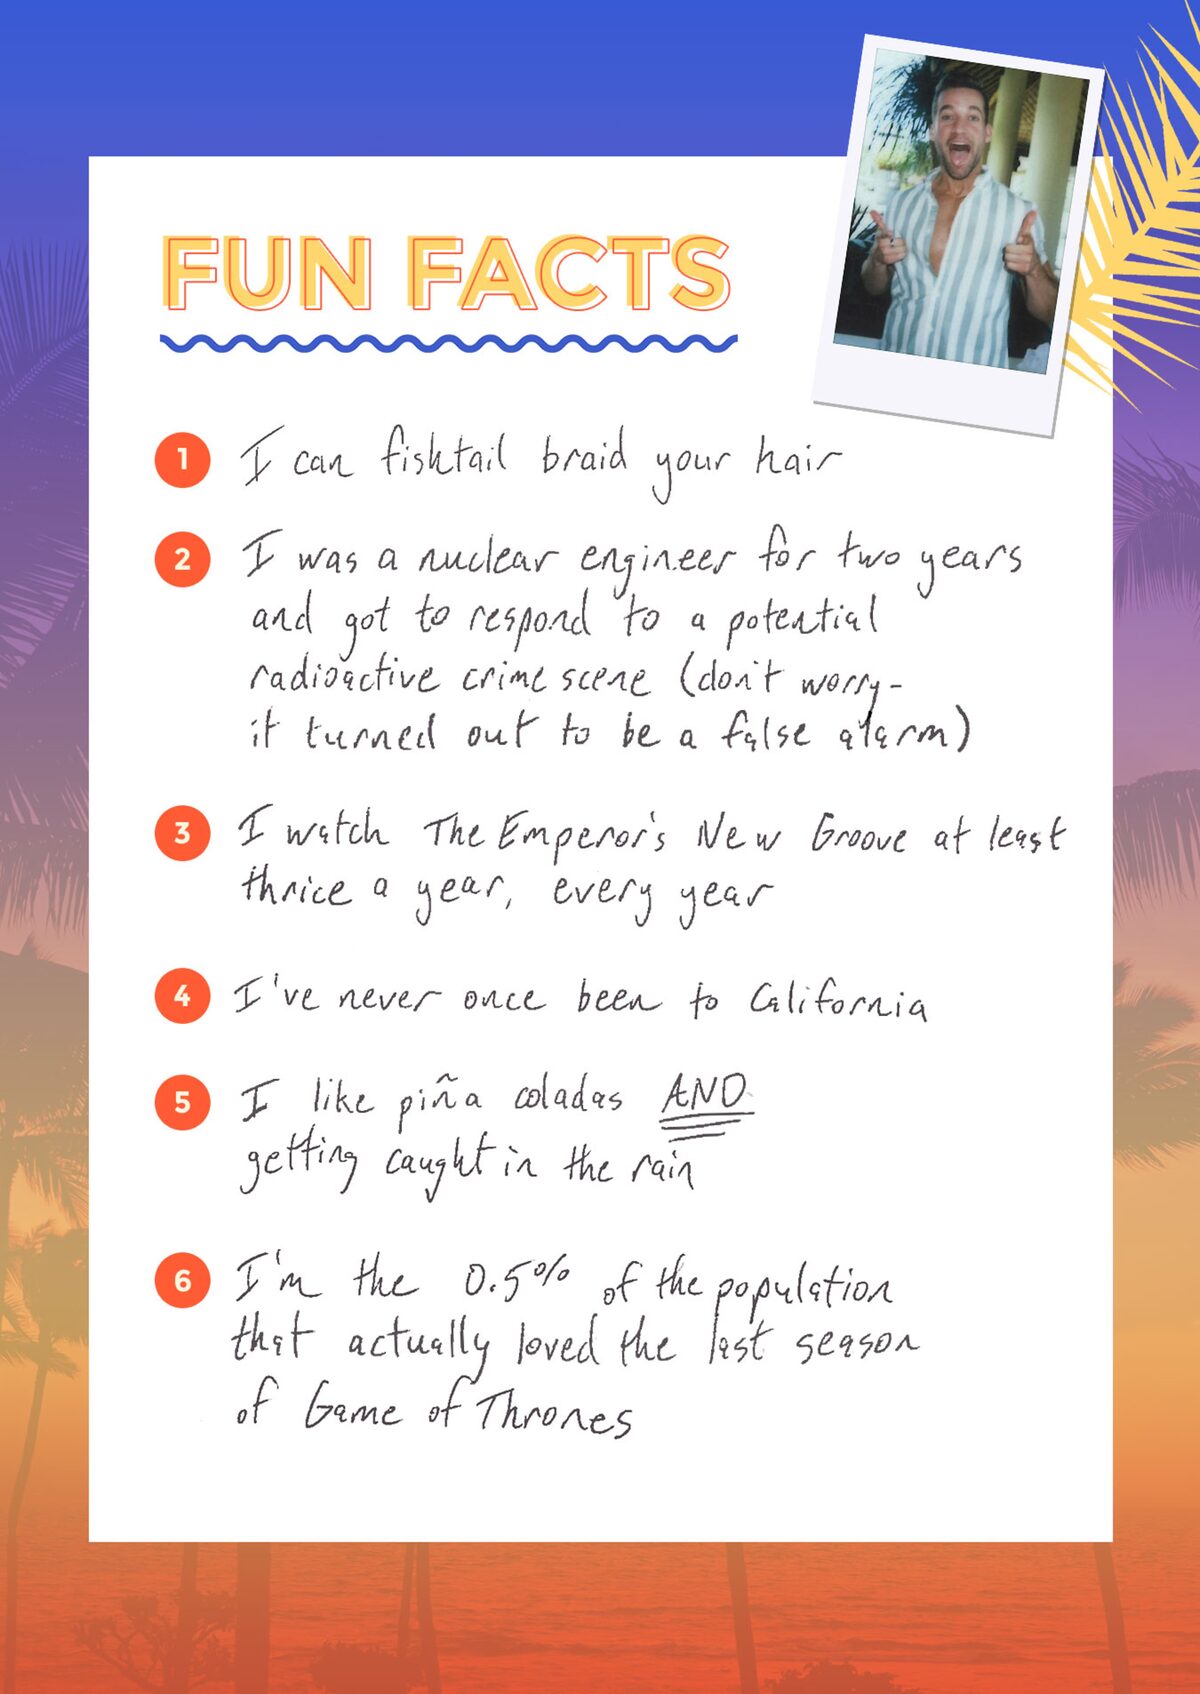 FUN FACTS
1 I can fishtail braid your hair
2 I was a nuclear engineer for two years
and got to respond to a potential
radioactive crime scene (don't worry-
it turned out to be a false alarm)
3 I watch The Emperor's New Groove at least
thrice a year, every year
4 I've never once been to California
5 I like piña coladas AND
getting caught in the rain
6 I'm the 0.5% of the population
that actually loved the last season
of Game of Thrones